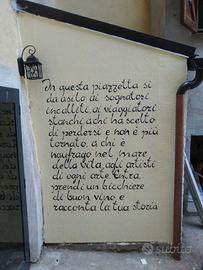 In questa piazzetta si
da asilo ai sognatori
incalliti, ai viaggiatori
stanchi, a chi ha scelto
di perdersi e non è più
tornato, a chi è
naufrago nel mare
della vita, agli artisti
di ogni arte. Entra,
prendi un bicchiere
di buon vino e
racconta la tua storia
subito